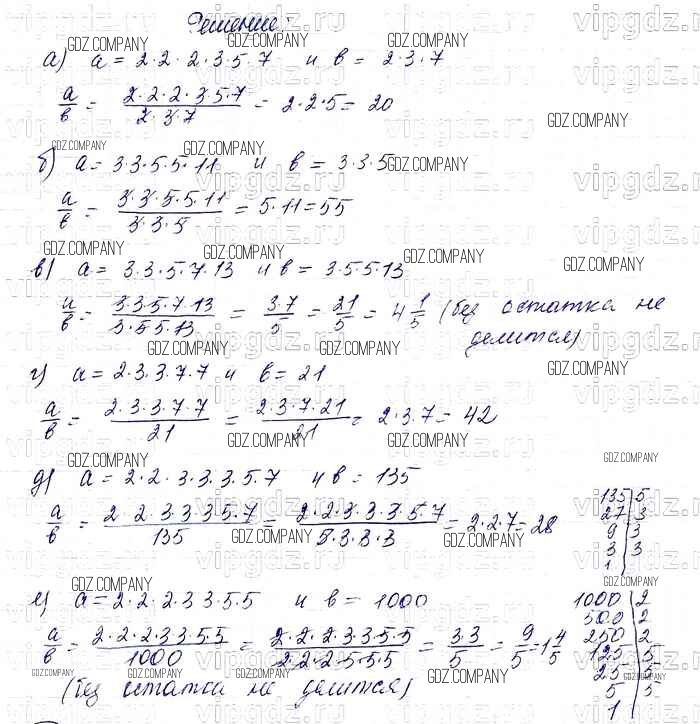 Решение:
а) a = 2·2·2·3·5·7 и в = 2·3·7
a/в = 2·2·2·3·5·7/2·3·7 = 2·2·5 = 20
б) a = 3·3·5·5·11 и в = 3·3·5
a/в = 3·3·5·5·11/3·3·5 = 5·11 = 55
в) a = 3·3·5·7·13 и в = 3·5·5·13
a/в = 3·3·5·7·13/3·5·5·13 = 3·7/5 = 21/5 = 4 1/5 (без остатка не
делится)
г) a = 2·3·3·7·7 и в = 21
a/в = 2·3·3·7·7/21 = 2·3·7·21/21 = 2·3·7 = 42
д) a = 2·2·3·3·3·5·7 и в = 135
a/в = 2·2·3·3·3·5·7/135 = 2·2·3·3·3·5·7/5·3·3·3 = 2·2·7 = 28
135 | 5
27 | 3
9 | 3
3 | 3
1
е) a = 2·2·2·3·3·5·5 и в = 1000
a/в = 2·2·2·3·3·5·5/1000 = 2·2·2·3·3·5·5/2·2·2·5·5·5 = 3·3/5 = 9/5 = 1 4/5
(без остатка не делится)
1000 | 2
500 | 2
250 | 2
125 | 5
25 | 5
5 | 5
1
GDZ.COMPANY
vipgdz.ru